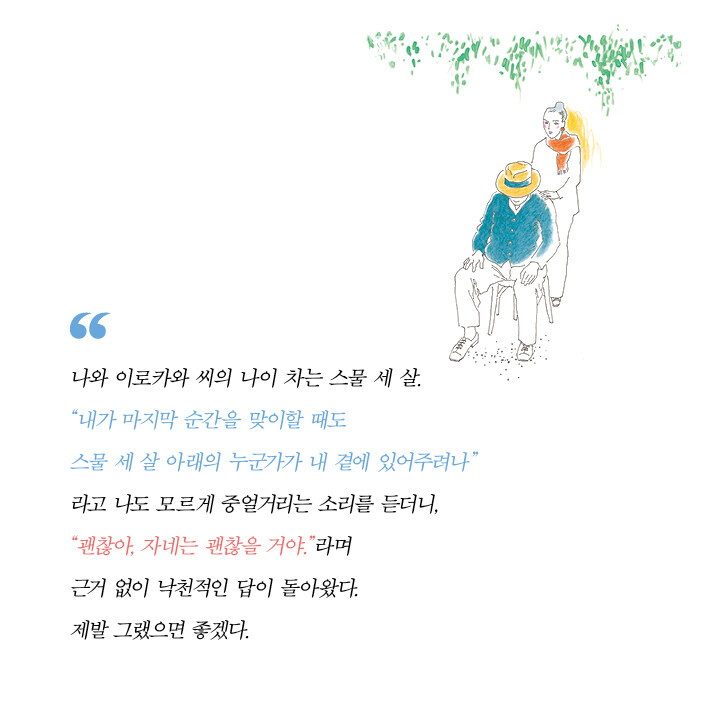 “
나와 이로카와 씨의 나이 차는 스물 세 살.
“내가 마지막 순간을 맞이할 때도
스물 세 살 아래의 누군가가 내 곁에 있어주려나”
라고 나도 모르게 중얼거리는 소리를 듣더니,
“괜찮아, 자네는 괜찮을 거야.”라며
근거 없이 낙천적인 답이 돌아왔다.
제발 그랬으면 좋겠다.